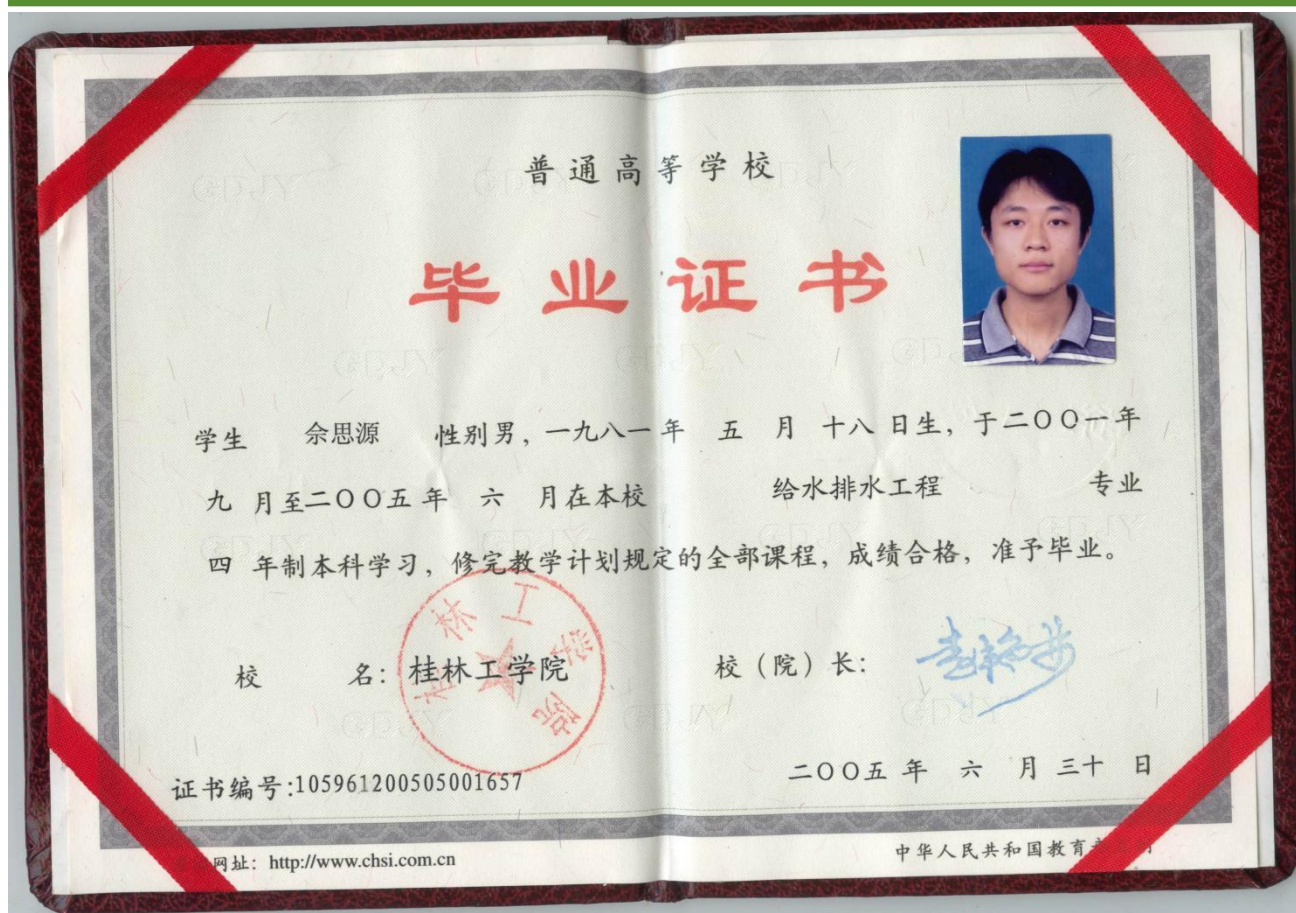 普通高等学校
毕业证书
学生 佘思源 性别男，一九八一年 五 月 十八 日生，于二〇〇一年
九 月至二〇〇五年 六 月在本校 给水排水工程 专业
四 年制本科学习，修完教学计划规定的全部课程，成绩合格，准予毕业。
校 名：桂林工学院
校（院）长：
桂林工学院
证书编号:105961200505001657
二〇〇五 年 六 月 三十 日
网址：http://www.chsi.com.cn
中华人民共和国教育
GDJY